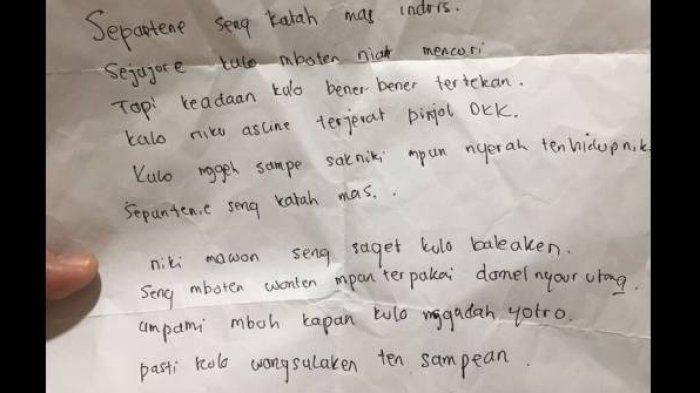 Sepantene seng katah mas indris.
Sejujore kulo mboten niat mencuri
Tapi keadaan kulo bener-bener tertekan.
kulo niku asline terjerat pinjol OKK.
Kulo nggeh sampe sakniki mpun nyerah ten hidup nik.
Sepunten.e seng katah mas. .
niki mawon seng saget kulo baleaken.
Seng mboten wonten mpun terpakai damel nyaur utang.
umpami mboh kapan kulo nggadah yotro.
pasti kulo wangsulaken ten sampean .